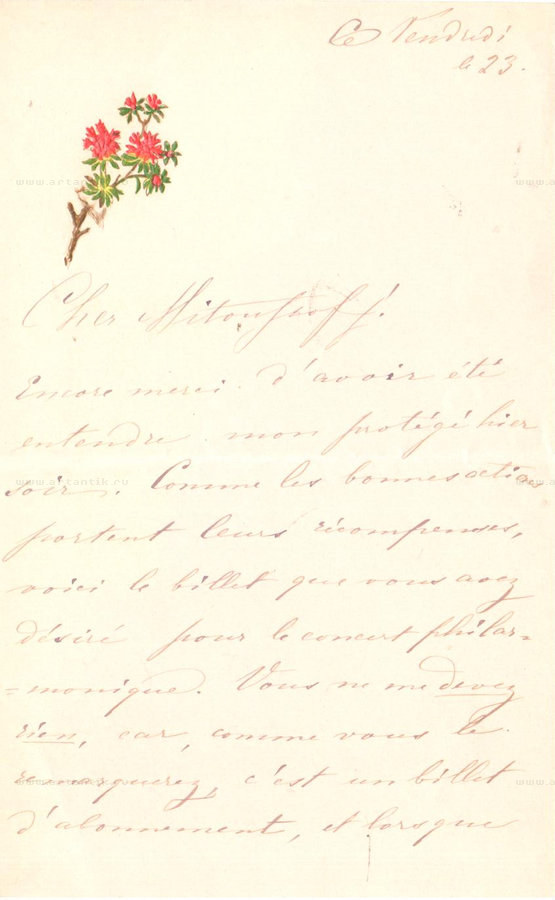 Ce Vendredi
le 23.
Cher Mitoussoff!
Encore merci d'avoir été
entendre mon protégé hier
soir. Comme les bonnes actions
portent leurs récompenses,
voici le billet que vous avez
désiré pour le concert philar=
=monique. Vous ne me devez
rien, car, comme vous le
remarquerez, c'est un billet
d'abonnement, et lorsque
www.artantik.ru